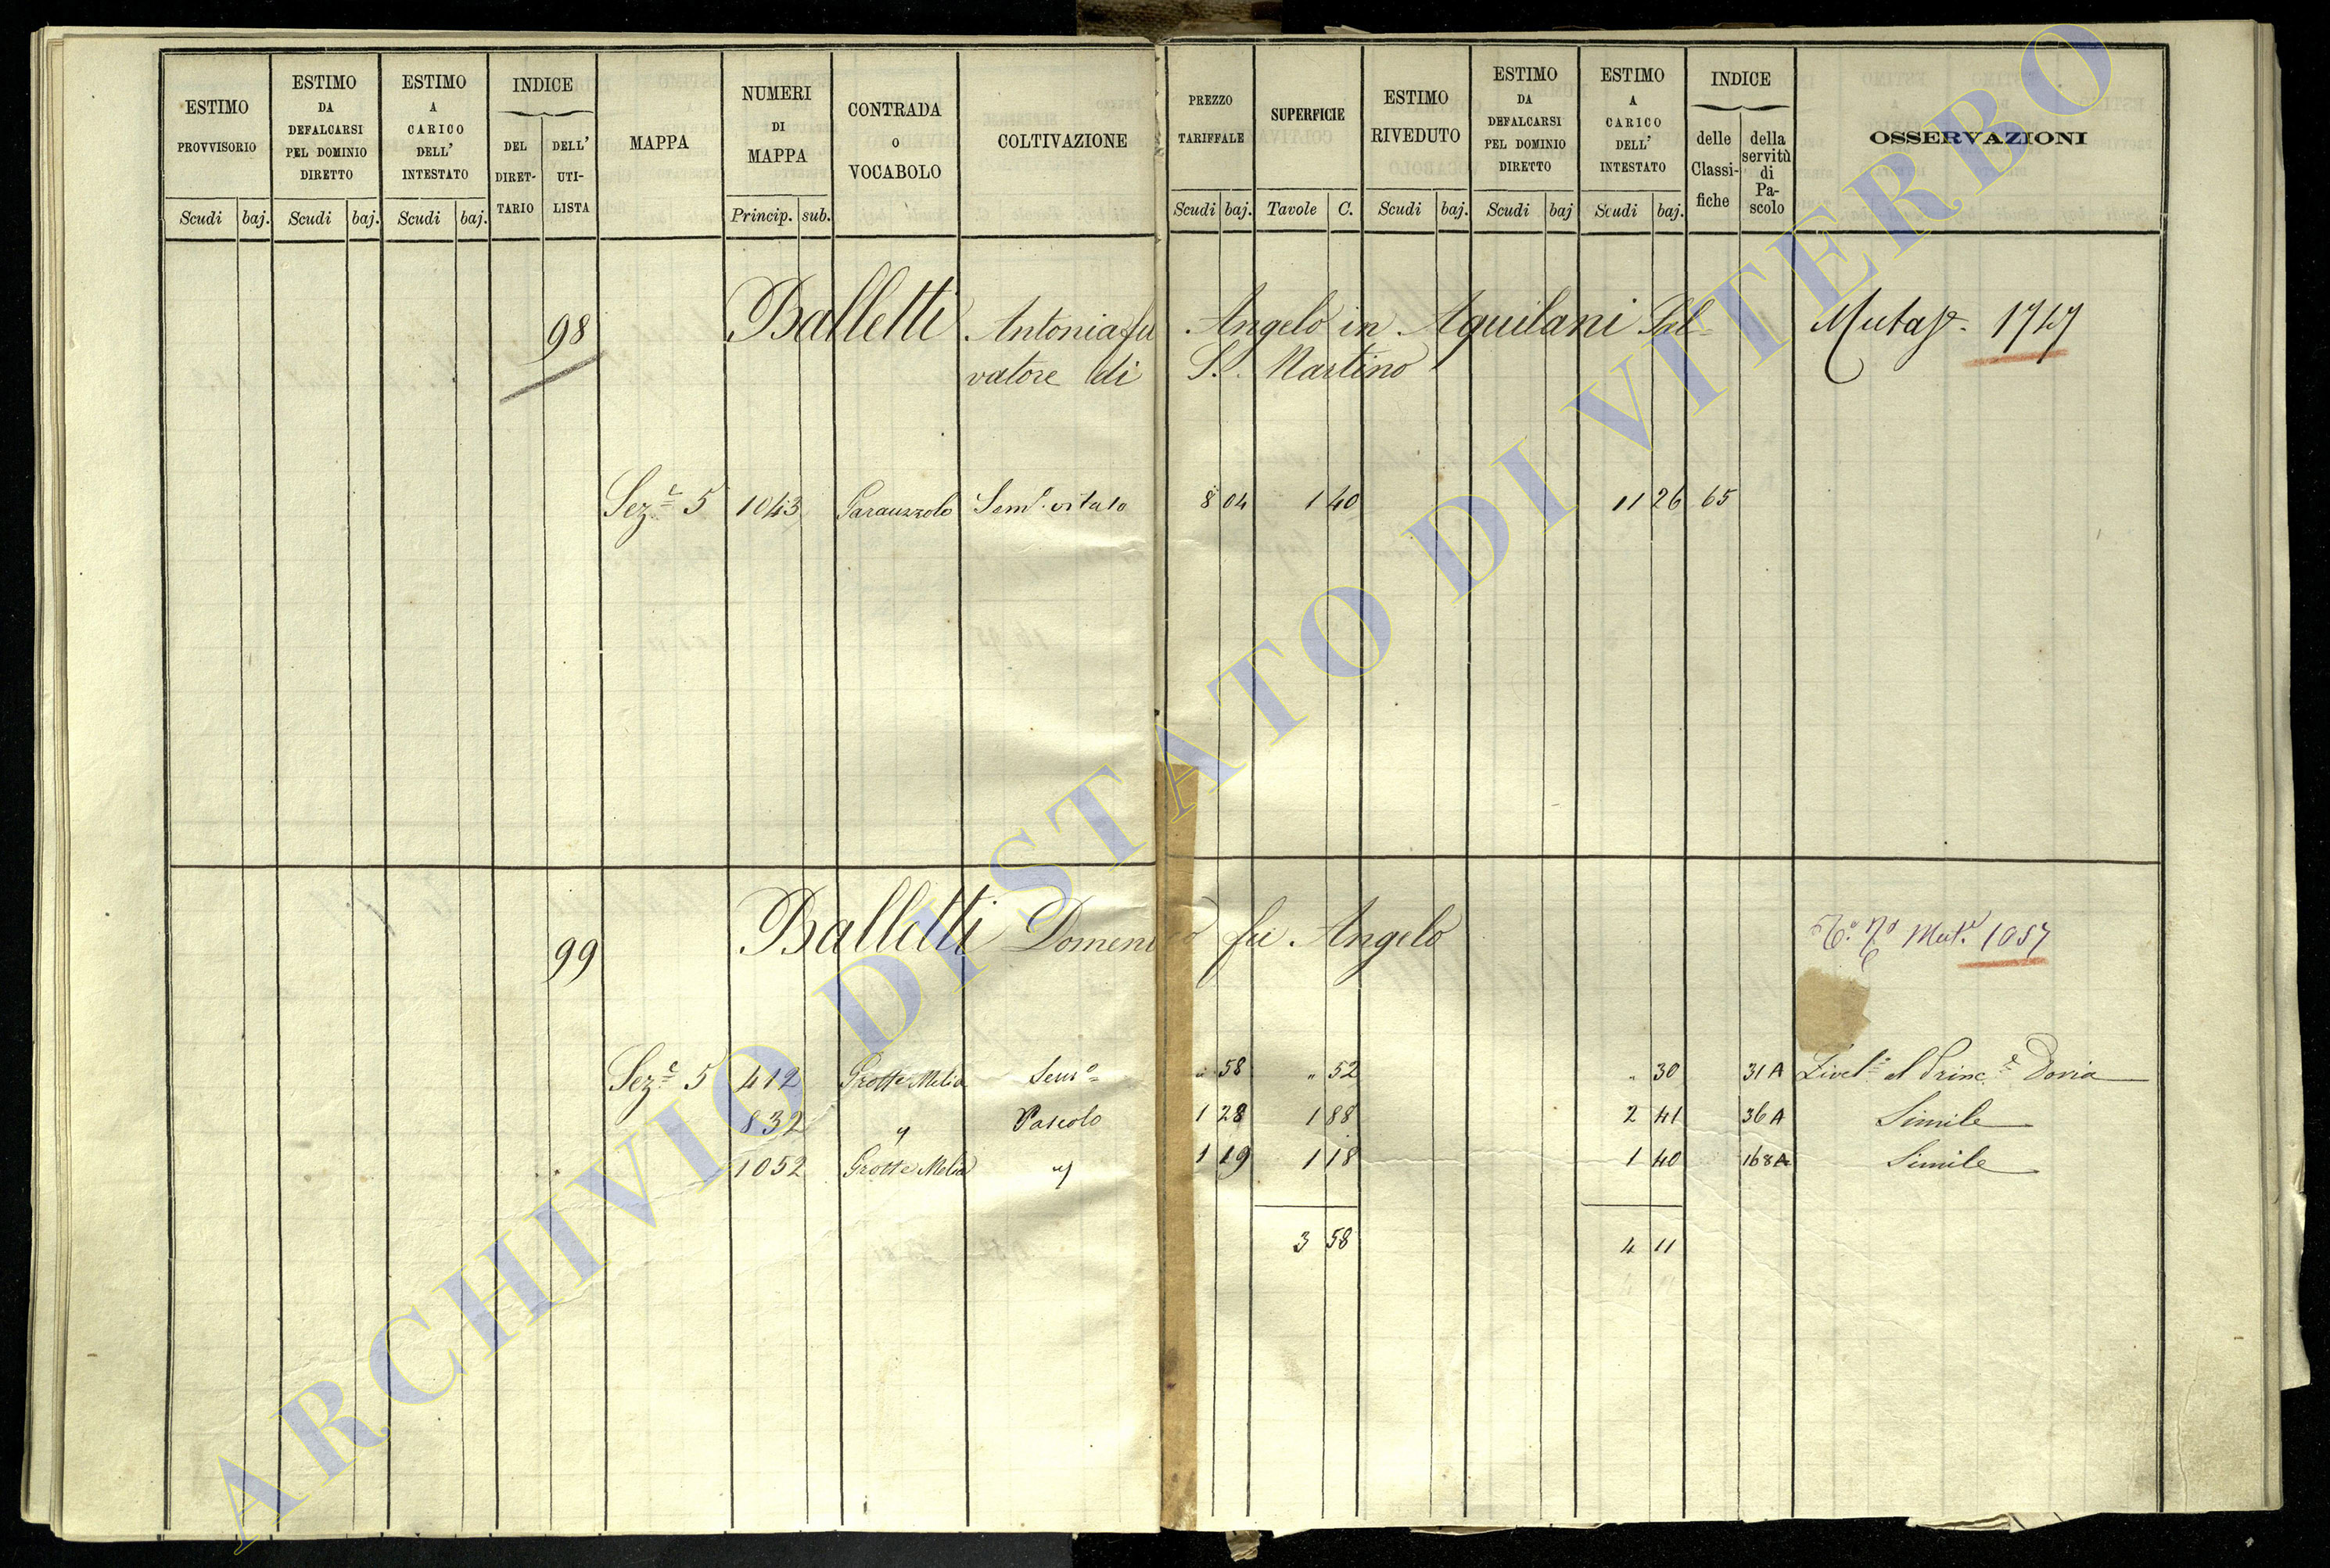 ESTIMO PROVVISORIO
Scudi baj.
ESTIMO DA DEFALCARSI PEL DOMINIO DIRETTO
Scudi baj.
ESTIMO A CARICO DELL' INTESTATO
Scudi baj.
INDICE
DEL DIRET-TARIO
DELL' UTI-LISTA
MAPPA
NUMERI DI MAPPA
Princip. sub.
CONTRADA O VOCABOLO
COLTIVAZIONE
PREZZO TARIFFALE
Scudi baj.
SUPERFICIE
Tavole C.
ESTIMO RIVEDUTO
Scudi baj.
ESTIMO DA DEFALCARSI PEL DOMINIO DIRETTO
Scudi baj
ESTIMO A CARICO DELL' INTESTATO
Scudi baj.
INDICE
delle Classi-fiche
della servitù di Pa-scolo
OSSERVAZIONI
98 Balletti Antonia fu Angelo in Aquilani Sal=
vatore di S. Martino
1747
Sez.e 5 1043 Sem.o vitato 8 04 1 40 11 26 65
99 Balletti Domenico fu Angelo
Mut.a 1057
Sez.e 5 412 Grotte Melia Sem.o " 58 " 52 " 30 31A Livel.o al Princ.e Doria
832 " Pascolo 1 28 1 88 2 41 36A Simile
1052 Grotte Melia " 1 19 1 18 1 40 168A Simile
3 58 4 11
ARCHIVIO DI STATO DI VITERBO